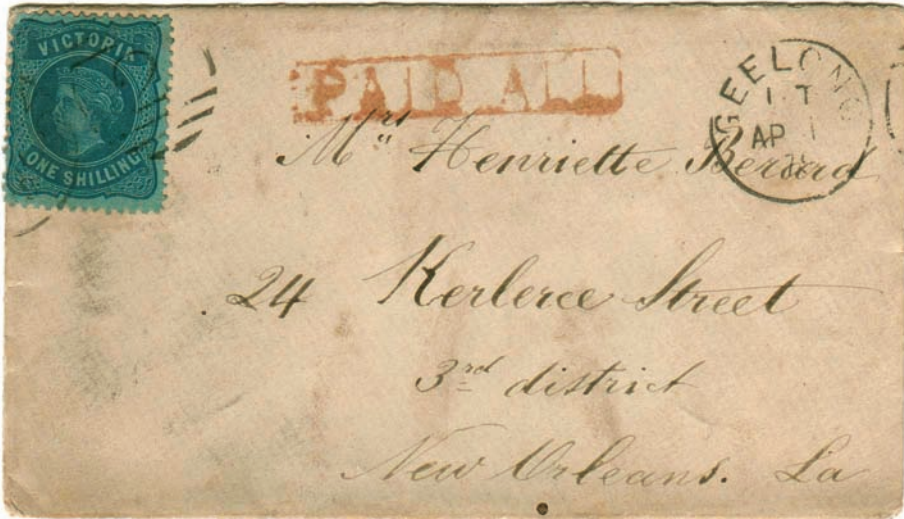 VICTORIA
ONE SHILLING
PAID ALL
GEELONG
1 T
AP 1
Mrs Henriette Berard
24 Kerlerce Street
3rd district
New Orleans. La